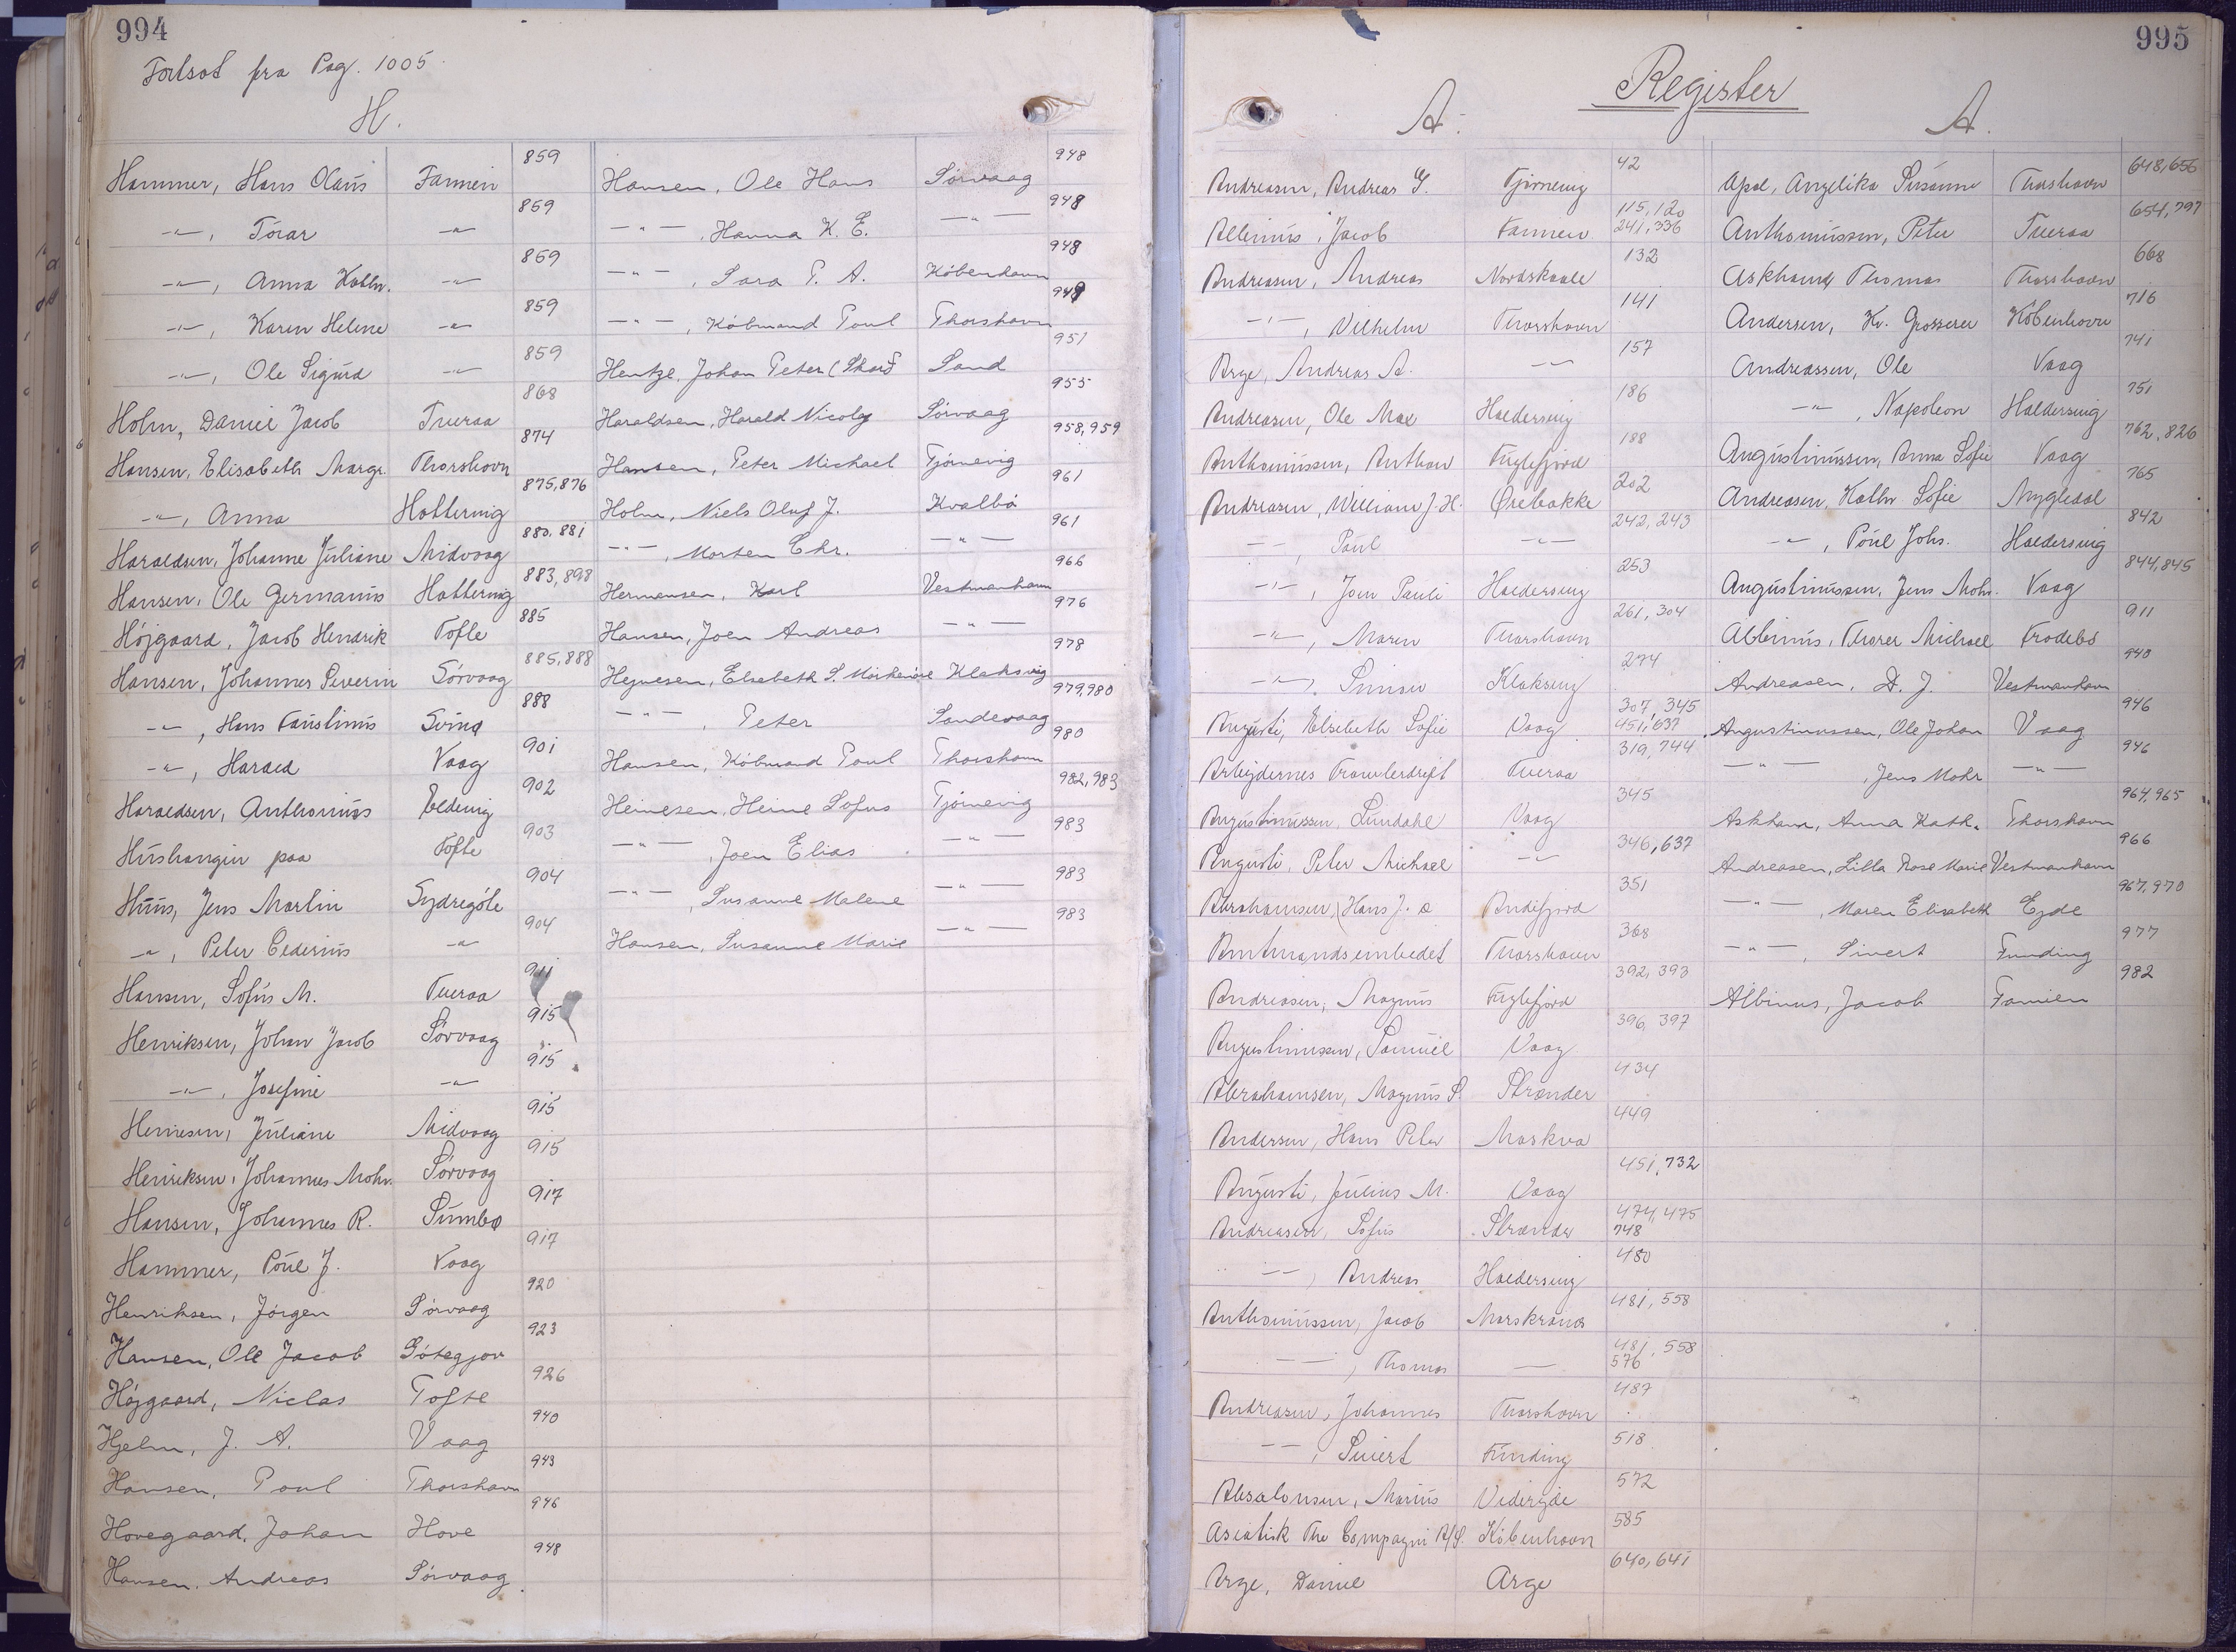 994
Fortsat fra Pag. 1005
H.
Hammer, Hans Olaus Famien 859
-"-, Tórar -"- 859
-"-, Anna Kathr. -"- 859
-"-, Karen Helene -"- 859
-"-, Ole Sigurd -"- 859
Holm, Daniel Jacob Tveraa 868
Hansen, Elisabeth Margr. Thorshavn 874
-"-, Anna Hattervig 875,876
Haraldsen, Johanne Juliane Midvaag 880,881
Hansen, Ole Germanus Hattervig 883,898
Højgaard, Jacob Hendrik Tofte 885
Hansen, Johannes Severin Sørvaag 885,888
-"-, Hans Faustinus Svinø 888
-"-, Harald Vaag 901
Haraldsen, Anthonius Eldevig 902
Húshangin paa Tofte 903
Huus, Jens Martin Sydregøte 904
-"-, Peter Cederius -"- 904
Hansen, Sofus M. Tveraa 911
Henriksen, Johan Jacob Sørvaag 915
-"-, Josefine -"- 915
Heinesen, Juliane Midvaag 915
Henriksen, Johannes Mohr. Sørvaag 915
Hansen, Johannes R. Sumbø 917
Hammer, Poul J. Vaag 917
Henriksen, Jørgen Sørvaag 920
Hansen, Ole Jacob Gøtegjov 923
Højgaard, Niclas Tofte 926
Hjelm, J. A. Vaag 940
Hansen, Poul Thorshavn 943
Hovegaard, Johan Hove 946
Hansen, Andreas Sørvaag 948
Hansen, Ole Hans Sørvaag 948
-"-, Hanna K. E. -"- 948
-"-, Sara P. A. København 948
-"-, Købmand Poul Thorshavn 949
Hentze, Johan Peter (Skard Sand 951
Haraldsen, Harald Nicolaj Sørvaag 955
Hansen, Peter Michael Tjørnevig 958,959
Holm, Niels Oluf J. Kvalbø 961
-"-, Morten Chr. -"- 961
Hermansen, Karl Vestmanhavn 966
Hansen, Joen Andreas -"- 976
Hejnesen, Elsebeth S. Klaksvig 978
-"-, Peter Sandevaag 979,980
Hansen, Købmand Poul Thorshavn 980
Heinesen, Heine Sofus Tjørnevig 982,983
-"-, Joen Elias -"- 983
-"-, Susanne Malene -"- 983
Hansen, Susanne Marie -"- 983
995
Register
A.
Andreasen, Andreas G. Tjørnevig 42
Albinus, Jacob Famien 115,120 241,336
Andreasen, Andreas Nordskaale 132
-"-, Vilhelm Thorshavn 141
Arge, Andreas A. -"- 157
Andreasen, Ole Max Haldersvig 186
Anthoniussen, Anthon Fuglefjord 188
Andreasen, William J. H. Ørebakke 202
-"-, Poul -"- 242,243
-"-, Joen Pauli Haldersvig 253
-"-, Maren Thorshavn 261,304
-"-, Simon Klaksvig 274
Augusti, Elsebeth Sofie Vaag 307,345 451,637
Arbejdernes Trawlerdrift Tveraa 319,744
Augustinussen, Lundahl Vaag 345
Augusti, Peter Michael -"- 346,637
Abrahamsen, Hans J. a Andefjord 351
Amtmandsembedet Thorshavn 368
Andreasen, Magnus Fuglefjord 392,393
Augustinussen, Samuel Vaag 396,397
Abrahamsen, Magnus S. Strænder 434
Andersen, Hans Peter Moskva 449
Augusti, Julius M. Vaag 451,732
Andreasen, Sofus Strænder 474,475 748
-"-, Andreas Haldersvig 480
Anthoniussen, Jacob Morskranes 481,558
-"-, Thomas -"- 481,558 576
Andreasen, Johannes Thorshavn 487
-"-, Sivert Funding 518
Absalonsen, Marius Viderejde 572
Asiatisk The Compagni A/S. København 585
Arge, Daniel Arge 640,641
A.
Apol, Angelika Susanne Thorshavn 648,656
Anthoniussen, Peter Tveraa 654,797
Askham, Thomas Thorshavn 668
Andersen, Kr. Grosserer København 716
Andreassen, Ole Vaag 741
-"-, Napoleon Haldersvig 751
Augustinussen, Anna Sofie Vaag 762,826
Andreasen, Kathr Sofie Nygledal 765
-"-, Poul Johs. Haldersvig 842
Augustinussen, Jens Mohr. Vaag 844,845
Albinus, Thorer Michael Frodebø 911
Andreasen, D. J. Vestmanhavn 940
Augustinussen, Ole Johan Vaag 946
-"-, Jens Mohr -"- 946
Askham, Anna Kath. Thorshavn 964,965
Andreasen, Lilla Rose Marie Vestmanhavn 966
-"-, Maren Elisabeth Ejde 967,970
-"-, Sivert Funding 977
Albinus, Jacob Famien 982